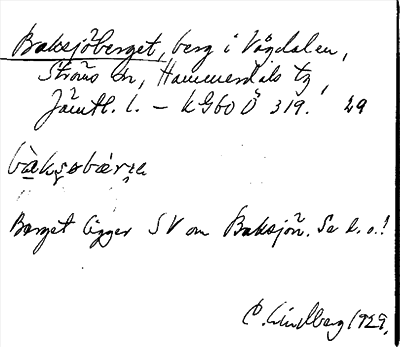 Baksjöberget, berg i Vågdalen,
Ströms sn, Hammerdals tg,
Jämtl. l. – KGbO Ö 319. 29
bàksøbærʒe
Berget ligger SV om Baksjön. Se d. o.!
C. Lindberg 1929.